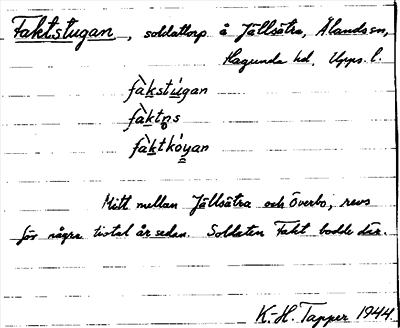 Faktstugan, soldattorp å Jällsätra, Ålands sn,
Hagunda hd, Upps. l.
fàkstúgan
fàktn̥s
fàktkóyan
Mitt mellan Jällsätra och Överbo, revs
för några tiotal år sedan. Soldaten Fakt bodde där.
K.-H. Tapper 1944.